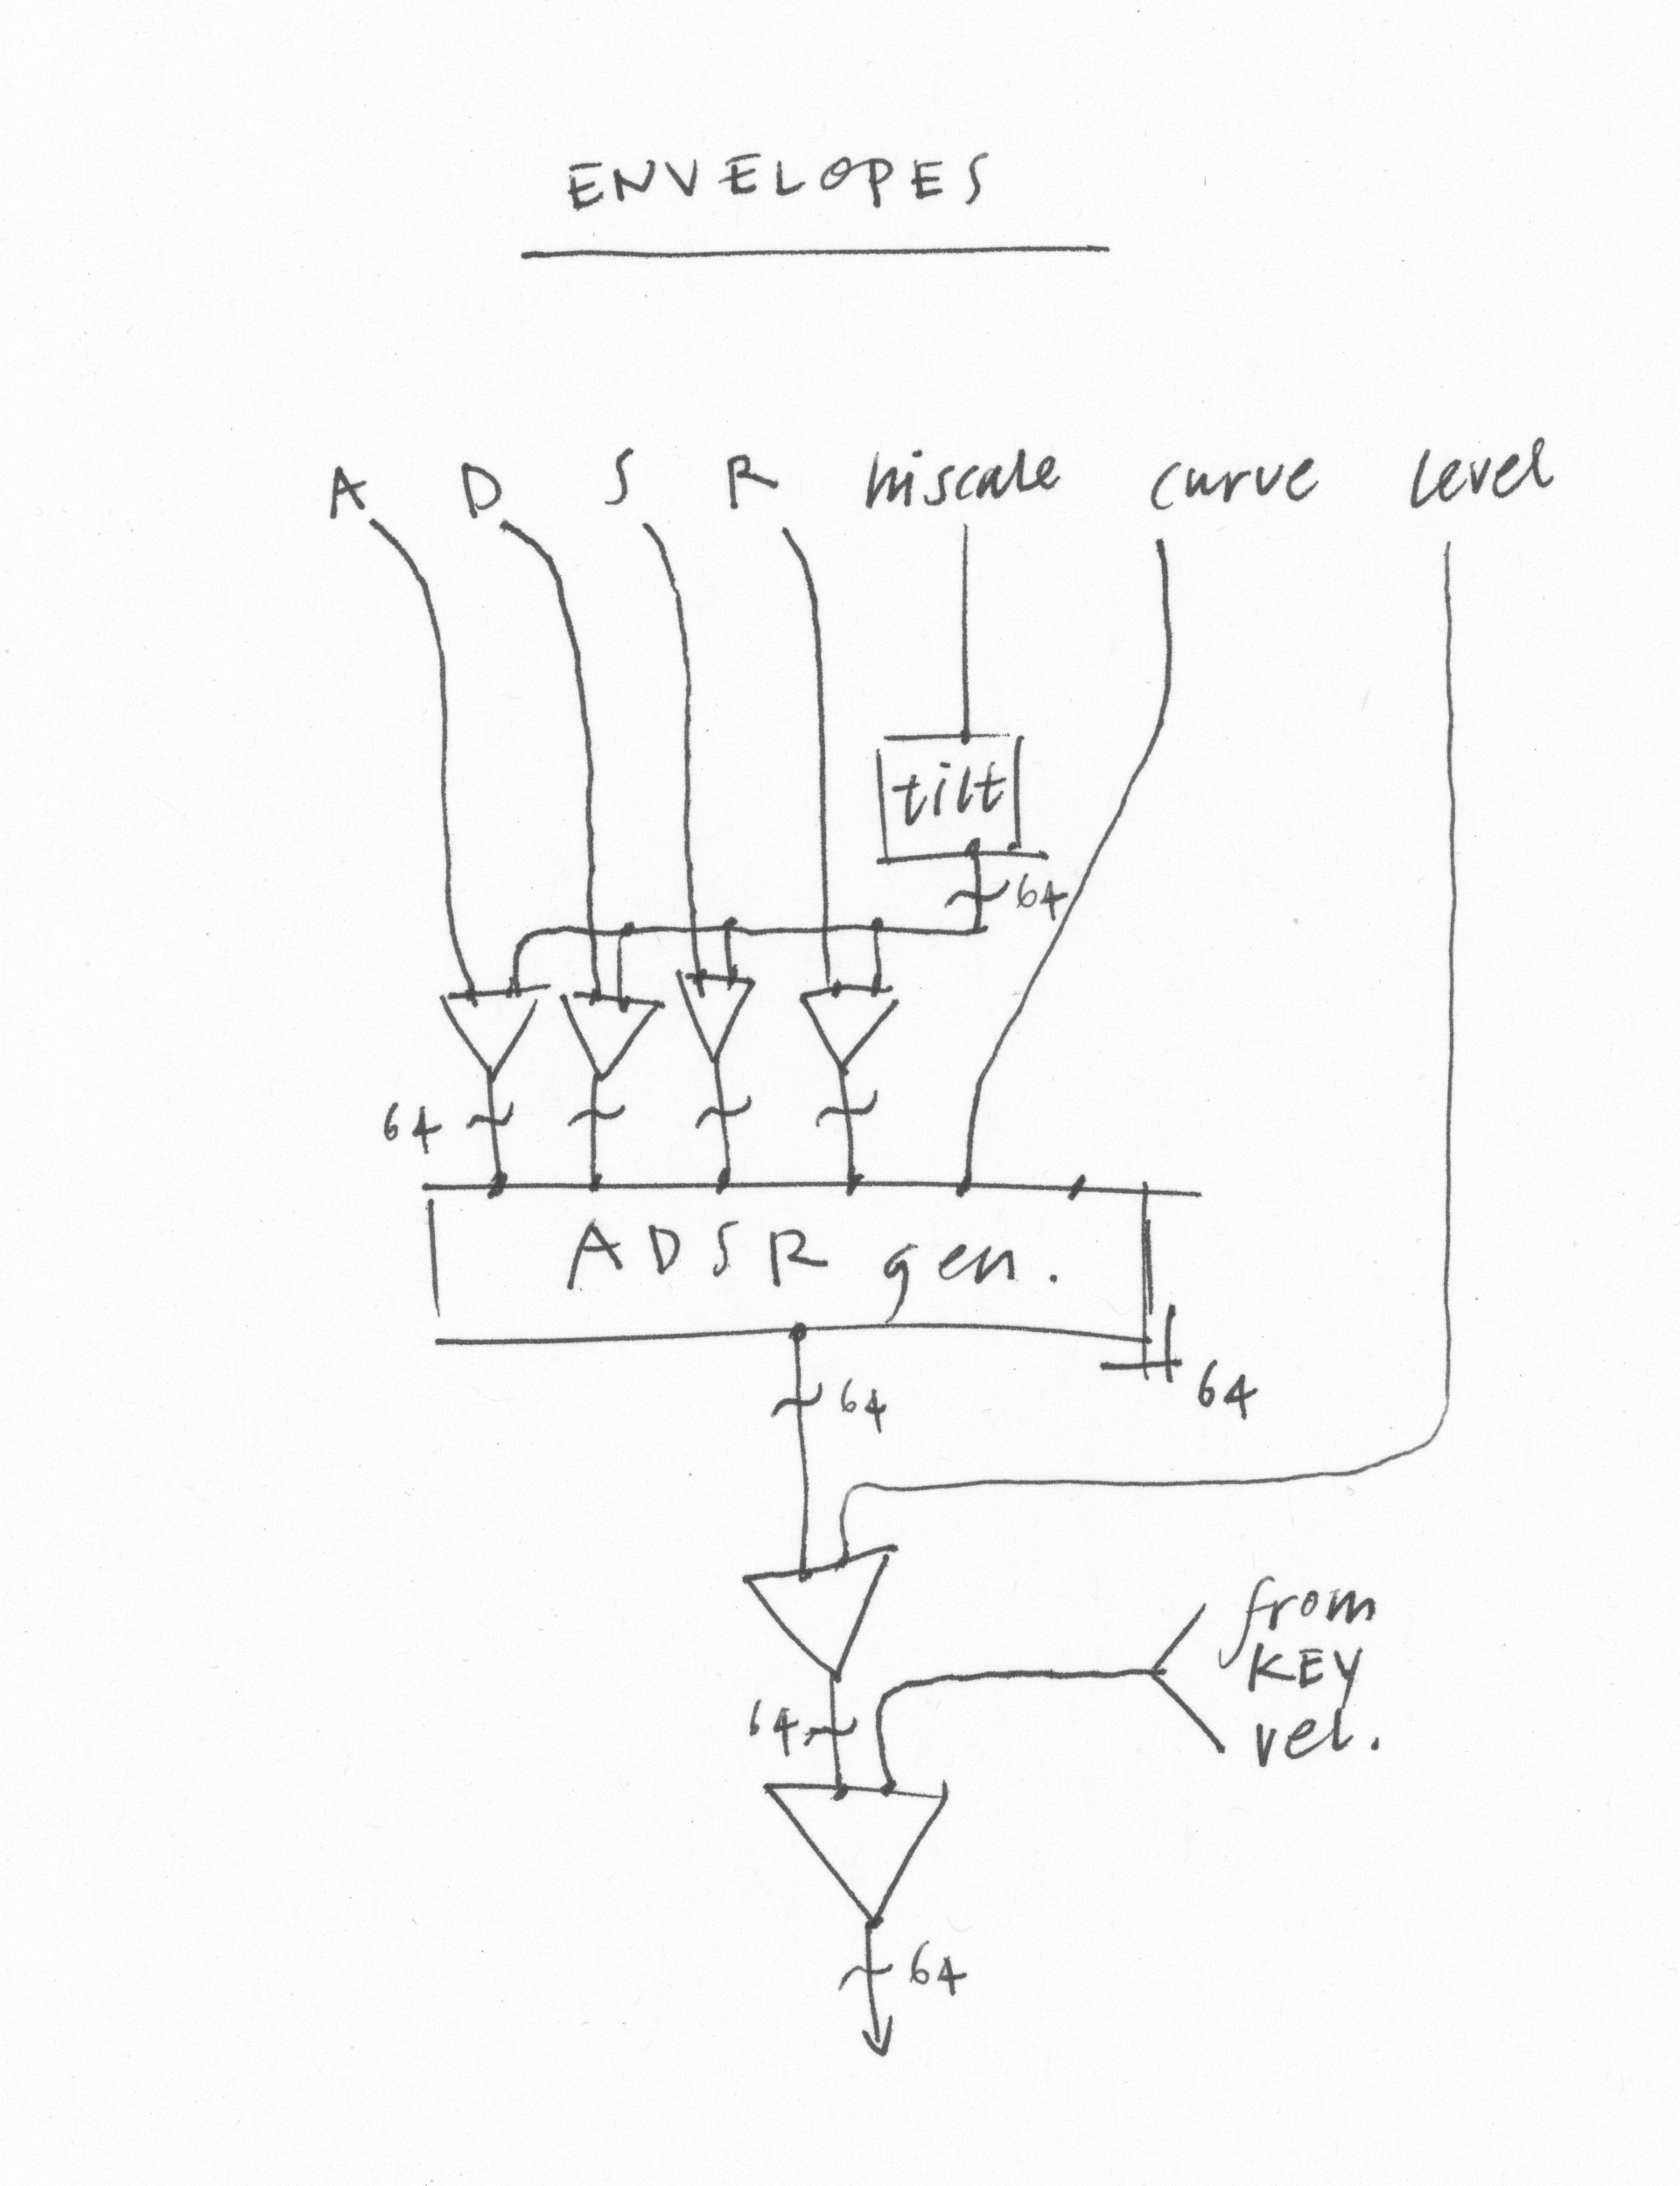 ENVELOPES
A D S R hiscale curve level
tilt
64
64
ADSR gen.
64
64
from
KEY
vel.
64
64